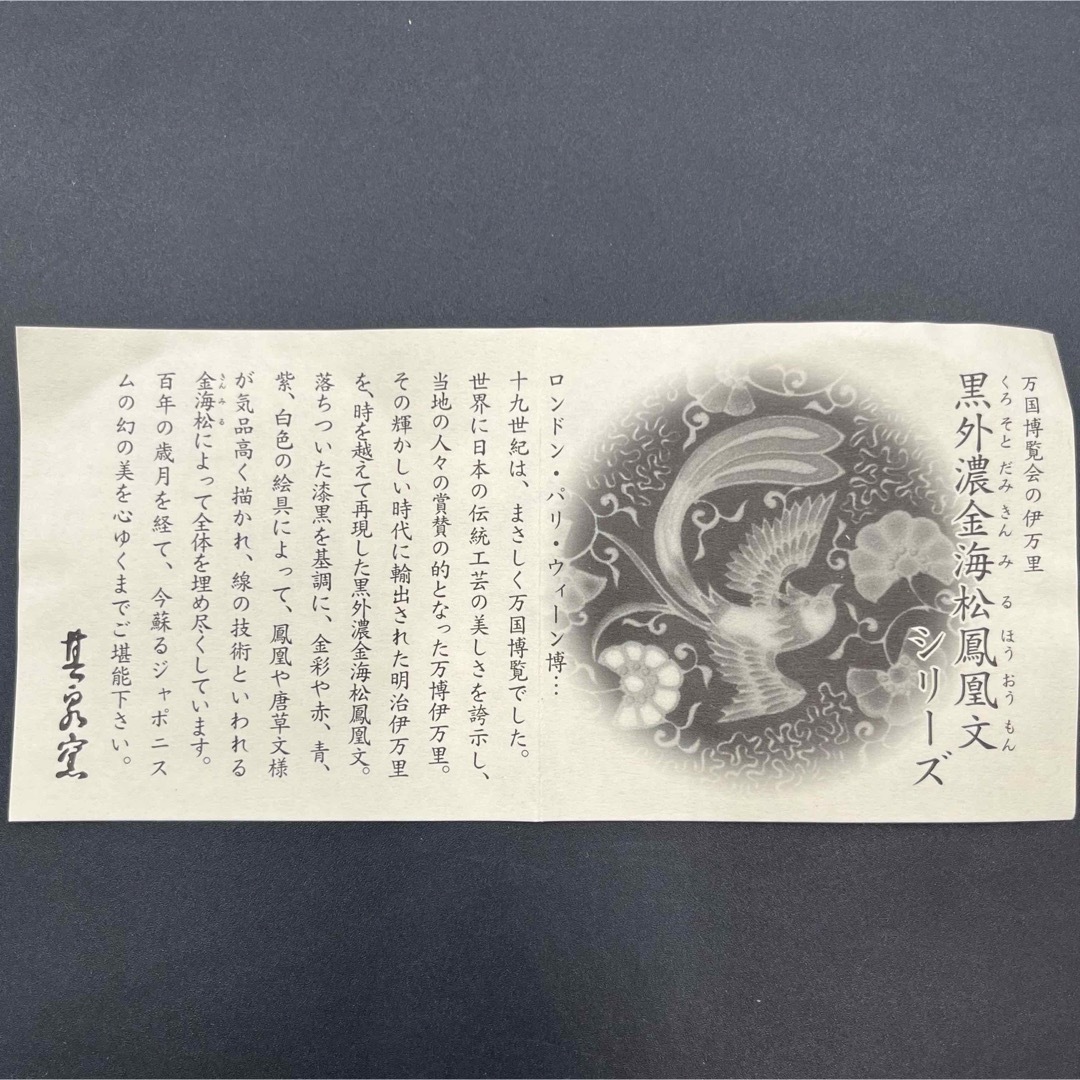 万国博覧会の伊万里
くろ そと だみ きん み る ほう おう もん
黒外濃金海松鳳凰文
シリーズ
ロンドン・パリ・ウィーン博…
十九世紀は、まさしく万国博覧でした。
世界に日本の伝統工芸の美しさを誇示し、
当地の人々の賞賛の的となった万博伊万里。
その輝かしい時代に輸出された明治伊万里
を、時を越えて再現した黒外濃金海松鳳凰文。
落ちついた漆黒を基調に、金彩や赤、青、
紫、白色の絵具によって、鳳凰や唐草文様
が気品高く描かれ、線の技術といわれる
きん み る
金海松によって全体を埋め尽くしています。
百年の歳月を経て、今蘇るジャポニス
ムの幻の美を心ゆくまでご堪能下さい。
其泉窯